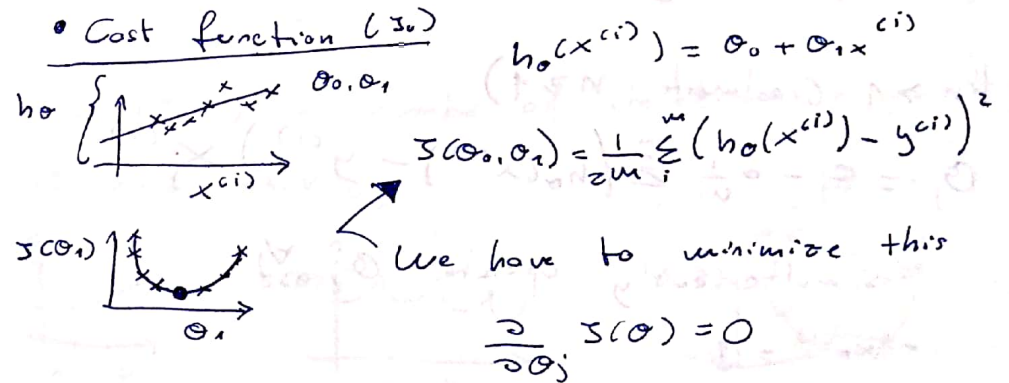 • Cost function (Jθ)
hθ(x^(i)) = θ₀ + θ₁x^(i)
hθ
θ₀, θ₁
x^(i)
J(θ₀, θ₁) = 1/2m Σ_i^m (hθ(x^(i)) - y^(i))²
J(θ₁)
θ₁
We have to minimize this
∂/∂θj J(θ) = 0